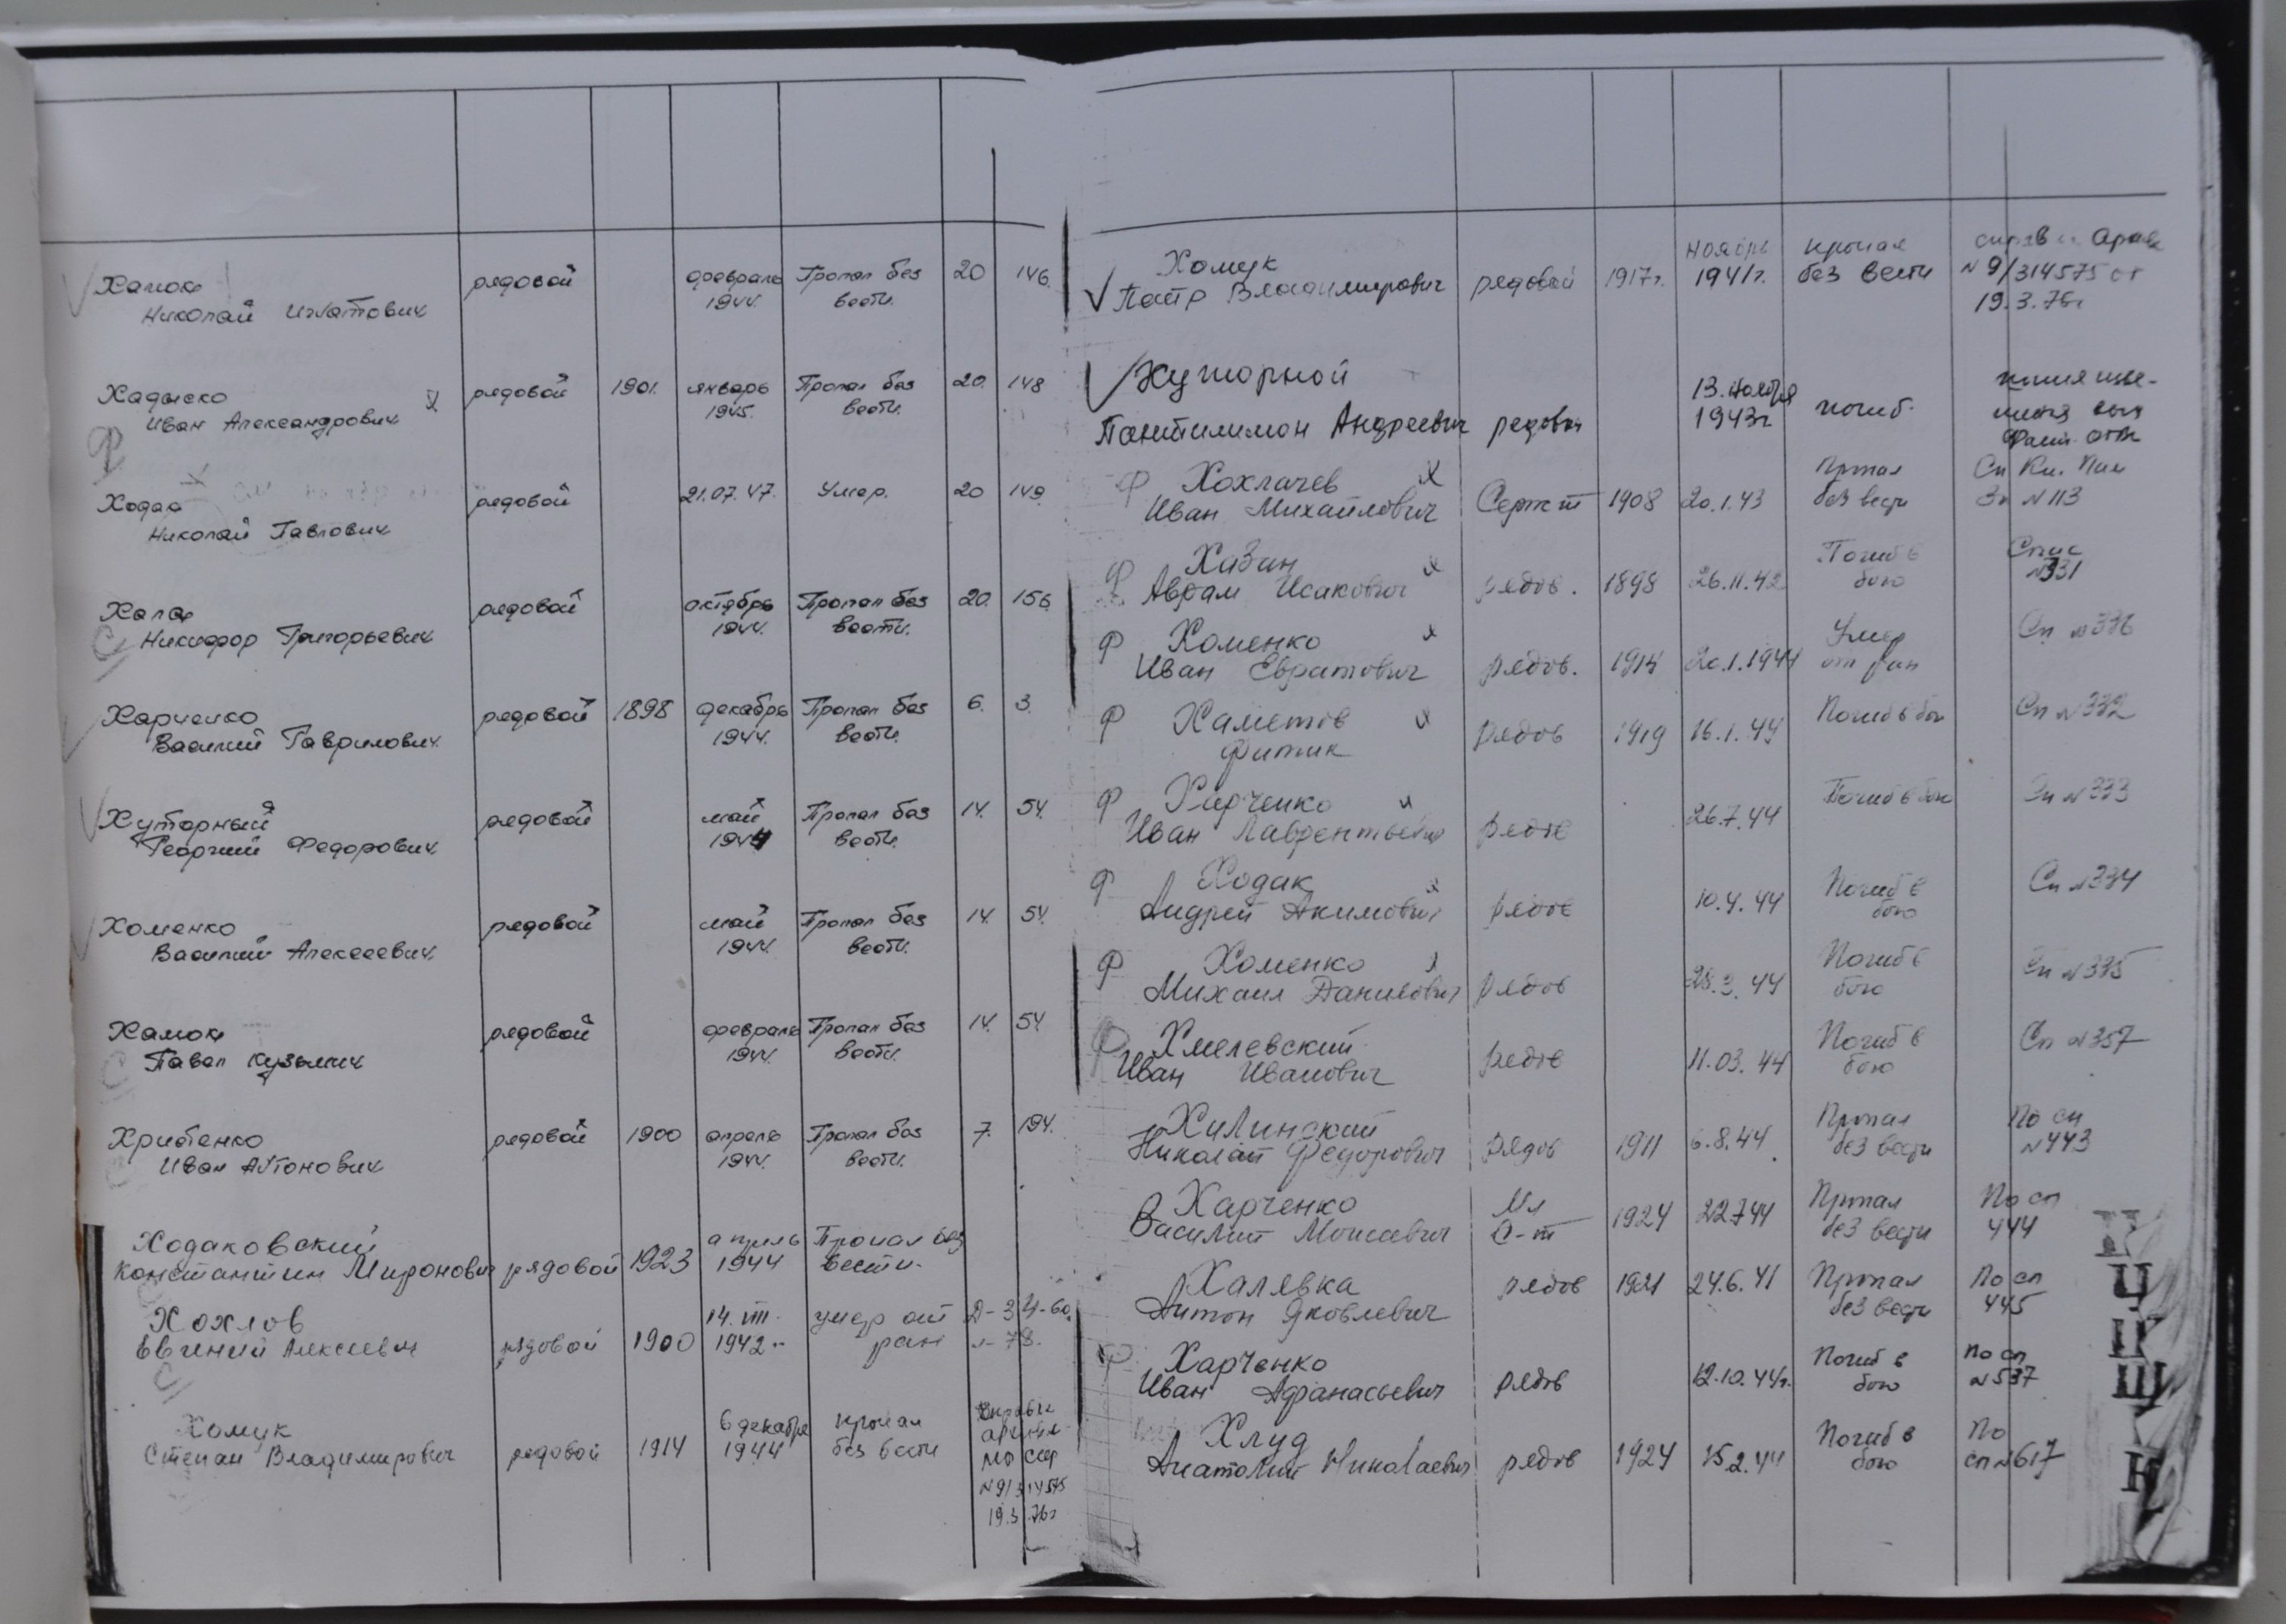 Хамок рядовой февраль Пропал без 20 146.
Николай Игнатович 1944. вести.
Хадыско рядовой 1901. январь Пропал без 20. 148
Иван Александрович 1945. вести.
Ходак рядовой 21.07.47. Умер. 20 149
Николай Павлович
Хала рядовой октябрь Пропал без 20. 156
Никифор Григорьевич 1944. вести.
Харченко рядовой 1898 декабрь Пропал без 6. 3.
Василий Гаврилович 1944. вести.
Хуторный рядовой май Пропал без 14. 54.
Георгий Федорович 1944 вести.
Хоменко рядовой май Пропал без 14. 54.
Василий Алексеевич 1944. вести.
Хамок рядовой февраль Пропал без 14. 54
Павел Кузьмич 1944. вести.
Хрибенко рядовой 1900 апрель Пропал без 7. 194.
Иван Антонович 1944. вести.
Ходаковский апрель Пропал без
Константин Миронович рядовой 1923 1944 вести.
Хохлов 14.VIII. умер от
Евгений Алексеевич рядовой 1900 1942 ран 78.
Хомук 6 декабря пропал справка
архива
Степан Владимирович рядовой 1914 1944 без вести МО СССР
N 9/314575
19.3.76г
Хомук ноябрь пропал
Петр Владимирович рядовой 1917г. 1941г. без вести N 9/314575 от
19.3.76г
Хуторной 13. ноября
Пантилимон Андреевич рядовой 1943г погиб.
Ф Хохлачев Пропал Сп Кн.
Иван Михайлович Сержт 1908 20.1.43 без вести Зп N 113
Ф Хазин Погиб в Спис
Аврам Исакович рядов. 1898 26.11.42 бою N331
Ф Хоменко Умер Сп N 336
Иван Евратович рядов. 1914 20.1.1944 от ран
Ф Хаметов Погиб в бою Сп N 332
Фитик рядов 1919 16.1.44
Ф Харченко Погиб в бою Сп N 333
Иван Лаврентьевич рядов 26.7.44
Ф Ходак Погиб в Сп N334
Андрей Акимович рядов 10.4.44 бою
Ф Хоменко Погиб в Сп N335
Михаил Данилович рядов 28.3.44 бою
Ф Хмелевский Погиб в Сп N357
Иван Иванович рядов 11.03.44 бою
Хилинский Пропал По сп
Николай Федорович рядов 1911 6.8.44 без вести N443
Харченко Мл Пропал По сп
Василий Моисеевич С-т 1924 22744 без вести 444
Халявка рядов 1921 24.6.41 Пропал По сп
Антон Яковлевич без вести 445
Ф Харченко Погиб в По сп
Иван Афанасьевич рядов 12.10.44г. бою N537
Хлуд Погиб в По
Анатолий Николаевич рядов 1924 15.2.44 бою сп N617
Ц
Щ